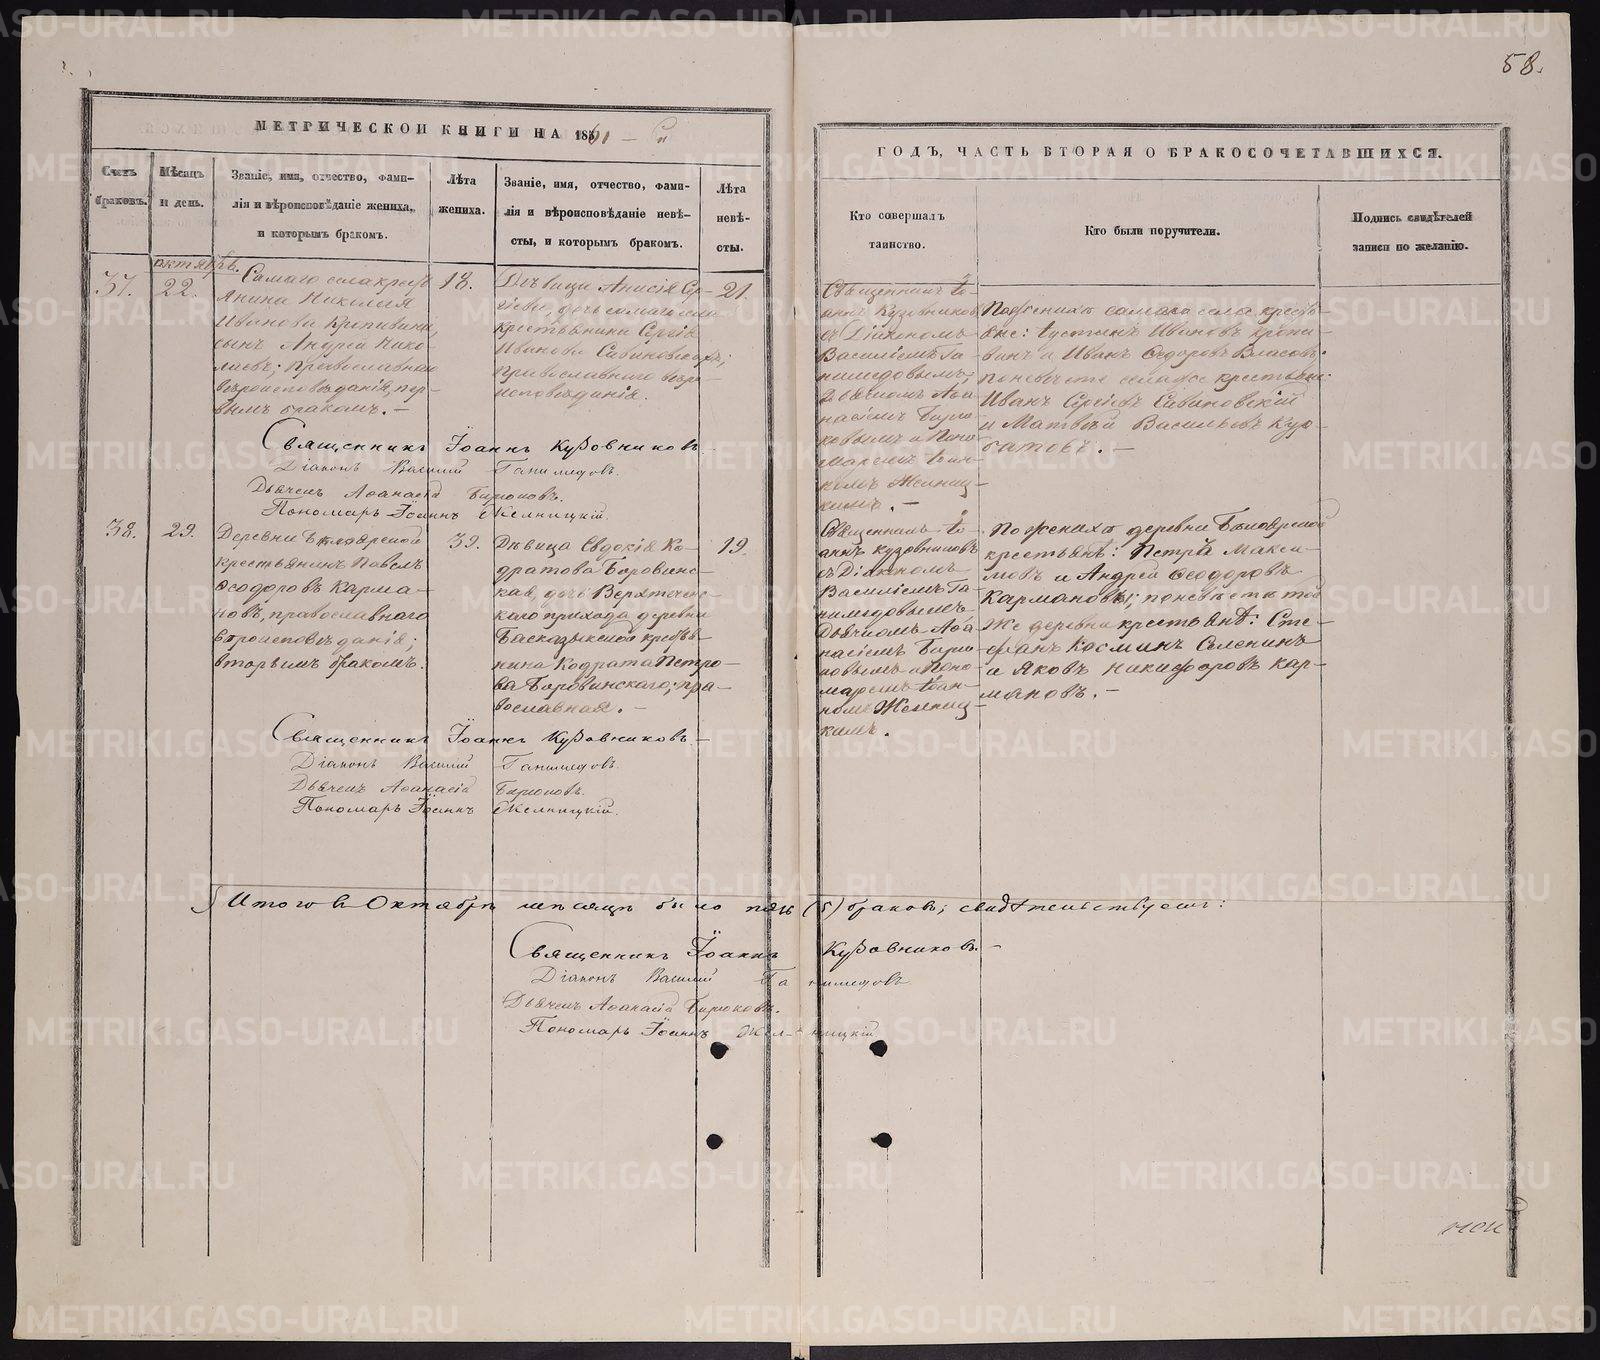 58.
МЕТРИЧЕСКОЙ КНИГИ НА 1861 - й
ГОДЪ, ЧАСТЬ ВТОРАЯ О БРАКОСОЧЕТАВШИХСЯ.
Счетъ браковъ.
Мѣсяцъ и день.
Званіе, имя, отчество, фами-
лія и вѣроисповѣданіе жениха,
и которымъ бракомъ.
Лѣта
жениха.
Званіе, имя, отчество, фами-
лія и вѣроисповѣданіе невѣ-
сты, и которымъ бракомъ.
Лѣта
невѣ-
сты.
Кто совершалъ
таинство.
Кто были поручители.
Подпись свидѣтелей
записи по желанію.
октябрь.
37.
22.
Самаго села кресть
янина Николая
Иванова Кропивина,
сынъ Андрей Нико-
лаевъ; Православнаго
вѣроисповѣданія, пер-
вымъ бракомъ. -
18.
Дѣвица Анисія Сер-
гіева, дочь самаго села
крестьянина Сергія
Иванова Сивиновскаго;
православнаго вѣро-
исповѣданія.
21.
Священникъ Іо-
аннъ Кузовниковъ
съ Діакономъ
Василіемъ Га-
нимедовымъ;
Дьячкомъ Афа-
насіемъ Бирю-
ковымъ и Поно-
маремъ Іоан-
номъ Желниц-
кимъ. -
По женихѣ самаго села кресть-
яне: Іустинъ Ивановъ Кропи-
винъ и Иванъ Ѳедоровъ Власовъ.
по невѣстѣ села же крестьяне:
Иванъ Сергіевъ Сивиновскій
и Матвѣй Васильевъ Кур-
батовъ. -
Священникъ Іоаннъ Кузовниковъ
Діаконъ Василій Ганимедовъ.
Дьячекъ Аѳанасій Бирюковъ.
Пономарь Іоаннъ Желницкій.
38.
29.
Деревни Бѣлоярской
крестьянинъ Павелъ
Ѳеодоровъ Карма-
новъ, православнаго
вѣроисповѣданія;
вторымъ бракомъ.
39.
Дѣвица Евдокія Ко-
дратова Боровинс-
кая, дочь Верхтеченс-
каго прихода деревни
Басказыкской кресть-
янина Кодрата Петро-
ва Боровинскаго; пра-
вославная. -
19.
Священникъ Іо-
аннъ Кузовниковъ
съ Діакономъ
Василіемъ Га-
нимедовымъ
Дьячкомъ Афа-
насіемъ Бирю-
ковымъ и Поно-
маремъ Іоан-
номъ Желниц-
кимъ.
По женихѣ деревни Бѣлоярской
крестьянѣ: Петръ Макси-
мовъ и Андрей Ѳеодоровъ
Кармановы; по невѣстѣ той
же деревни крестьянѣ: Сте-
фанъ Косминъ Селенинъ
и Яковъ Никифоровъ Кар-
мановъ. -
Священникъ Іоаннъ Кузовниковъ -
Діаконъ Василій Ганимедовъ.
Дьячекъ Аѳанасій Бирюковъ.
Пономарь Іоаннъ Желницкій.
Итого въ Октябрѣ мѣсяцѣ было пять (5) браковъ; свидѣтельствуемъ:
Священникъ Іоаннъ Кузовниковъ. -
Діаконъ Василій Ганимедовъ
Дьячекъ Аѳанасій Бирюковъ.
Пономарь Іоаннъ Желницкій
METRIKI.GASO-URAL.RU